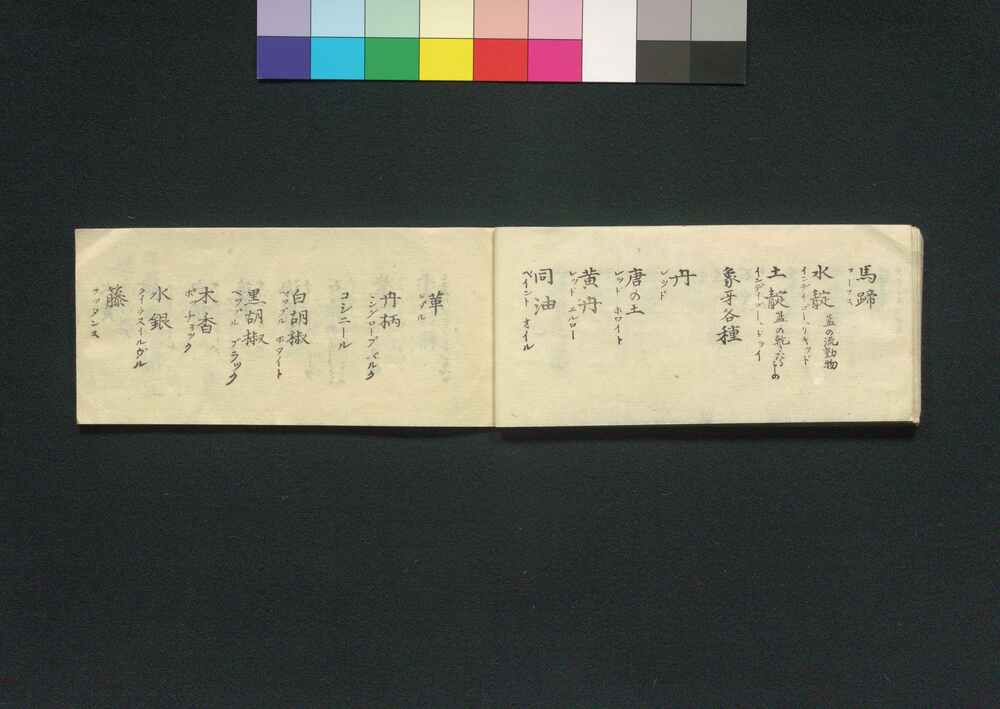 馬蹄
フーフス
水靛 藍の流動物
インディゴー、リキッド
土靛 藍の乾きたるもの
インディゴー、ドライ
象牙各種
丹
レッド
唐の土
レッド ホワイト
黄丹
レッド、エルロー
同油
ペイント オイル
革
レザル
丹柄
ミングローブ バルク
コシニール
白胡椒
ペッブル ホワイト
黒胡椒
ペッブル ブラック
木香
ポーチョック
水銀
クイッキスールヴル
藤
ラッタンス